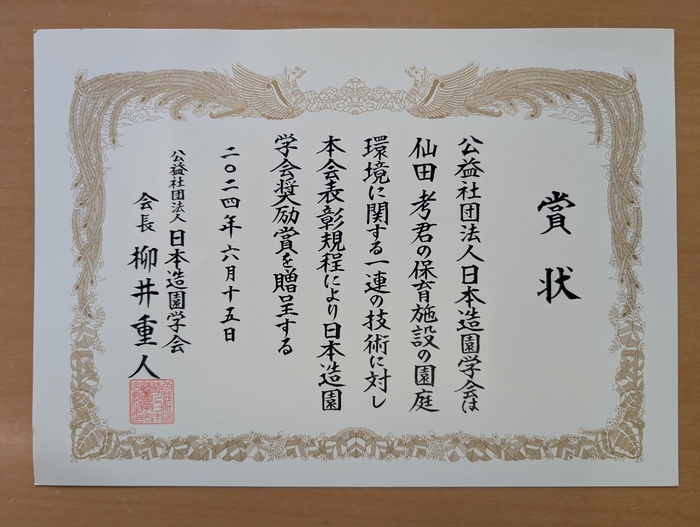 賞状
公益社団法人日本造園学会は
仙田考君の保育施設の園庭
環境に関する一連の技術に対し
本会表彰規程により日本造園
学会奨励賞を贈呈する
二〇二四年六月十五日
公益社団法人日本造園学会
会長柳井重人